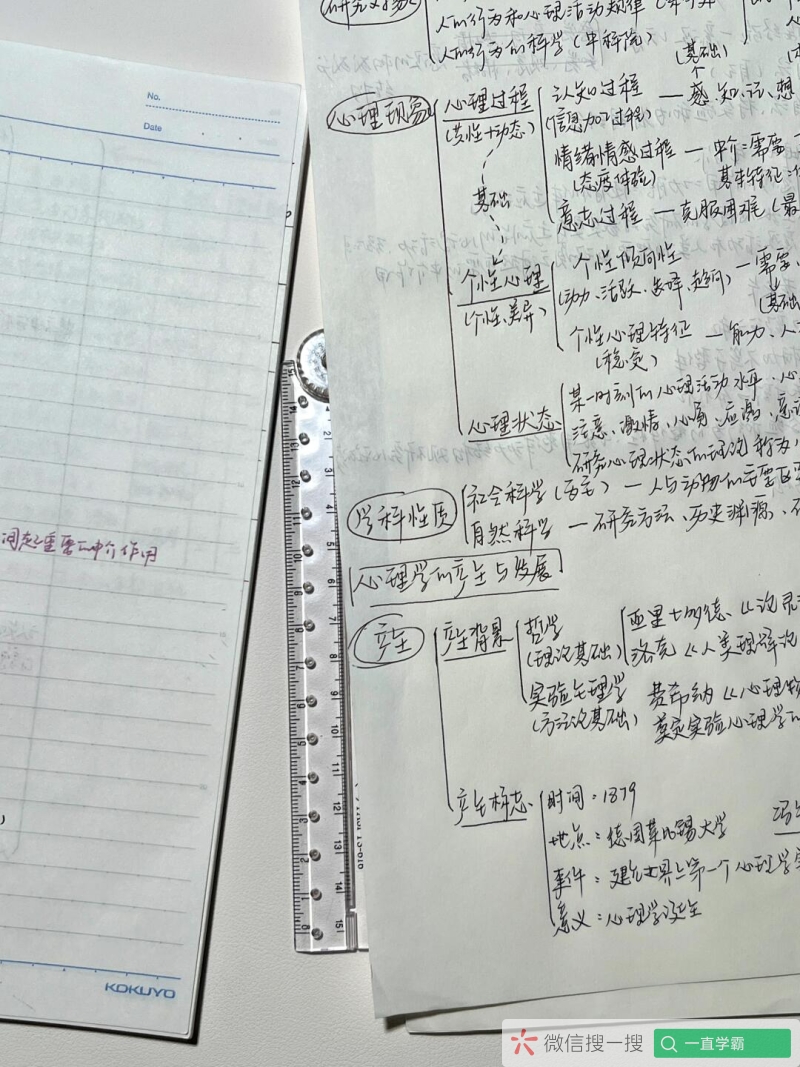 No.
Date
间起重要的中介作用
KOKUYO
人的行为和心理活动规律
人的行为的科学
(基础)
心理现象
心理过程
(共性+动态)
认知过程 — 感、知、记、想
(信息加工过程)
情绪情感过程 — 中介:需要
(态度体验) 基本特征:
意志过程 — 克服困难(最
基础
个性心理
(个性、差异)
个性倾向性 — 需要、
(动力、活跃、选择、趋向)
(基础
个性心理特征 — 能力、人
(稳定)
心理状态
某一时刻的心理活动水平、心
注意、激情、心境、应激、意
研究心理状态的理论称为
学科性质
社会科学(为主) — 人与动物的主要区
自然科学 — 研究方法、历史渊源、
心理学的产生与发展
产生
产生背景
哲学
(理论基础)
亚里士多德、《论灵
洛克《人类理解论
实验生理学 费希纳《心理物
(方法论基础) 奠定实验心理学的
产生标志
时间:1879
地点:德国莱比锡大学
事件:建立世界上第一个心理学实
意义:心理学诞生
2
3
4
5
6
7
8
9
10
11
12
13
14
15
微信搜一搜
一直学霸